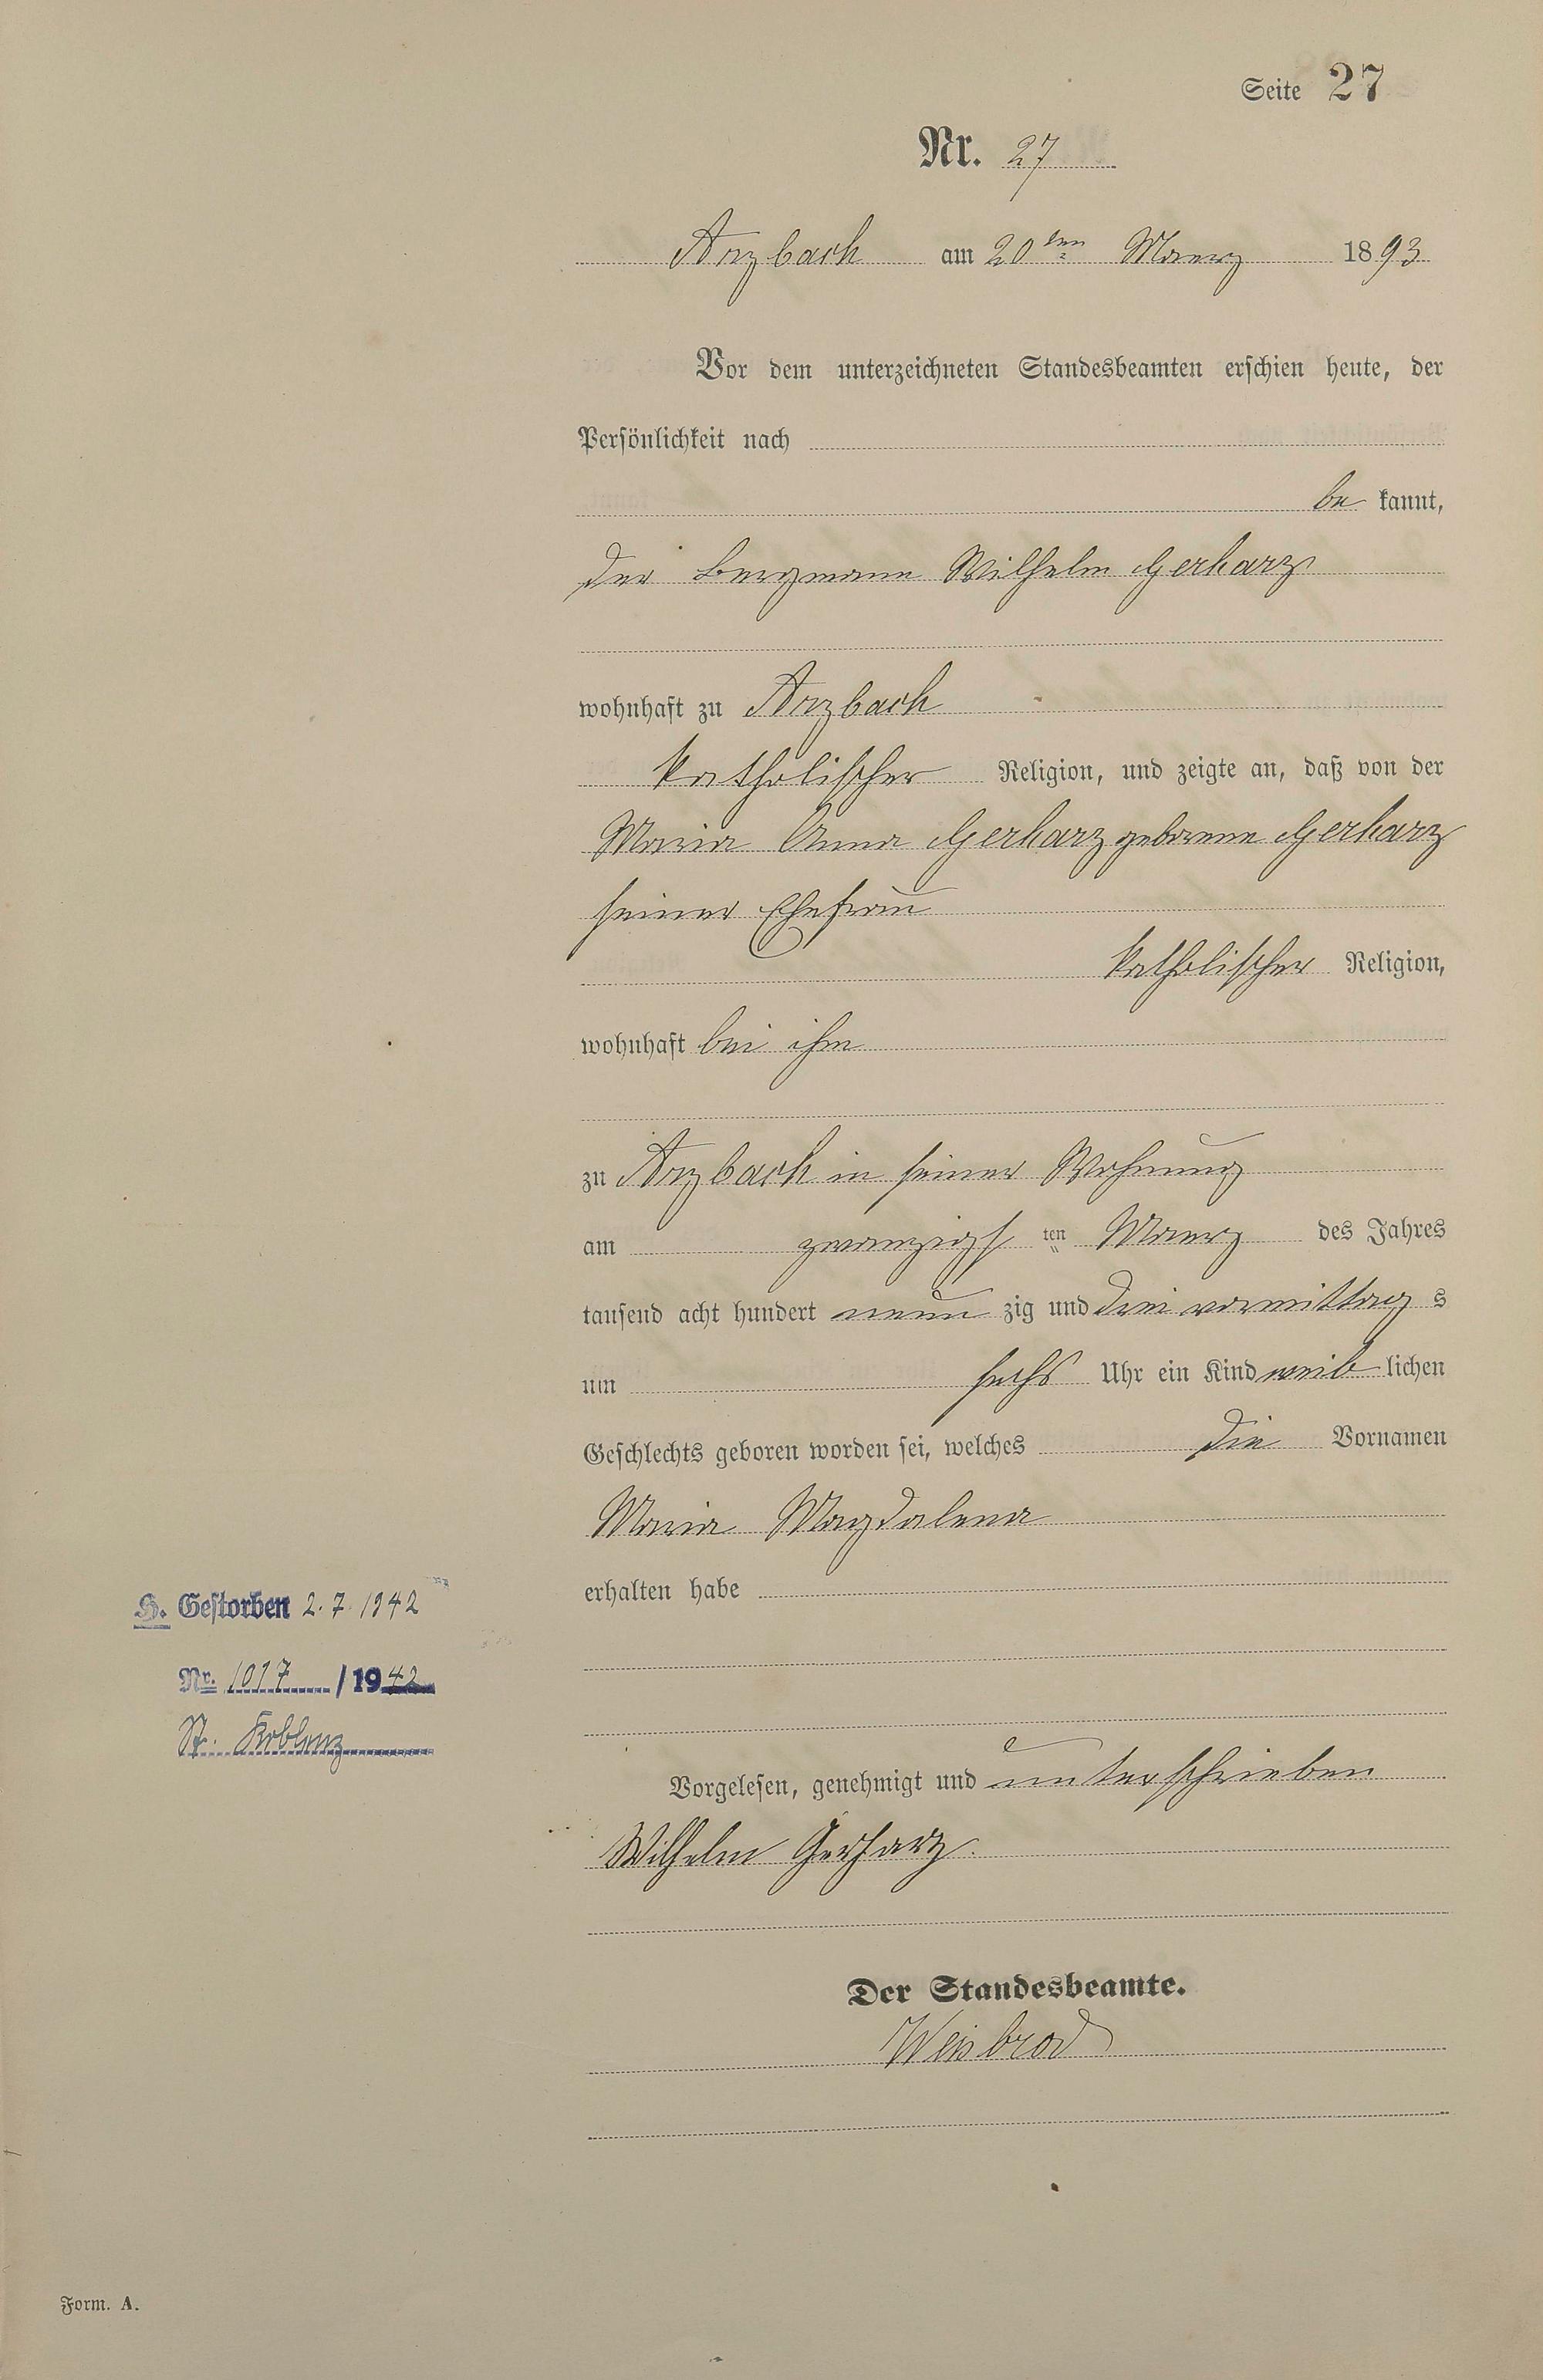 Seite 27
Nr. 27
Arzbach am 20ten Maerz 1893
Vor dem unterzeichneten Standesbeamten erschien heute, der
Persönlichkeit nach
be kannt,
der Bergmann Wilhelm Gerharz
wohnhaft zu Arzbach
katholischer Religion, und zeigte an, daß von der
Maria Anna Gerharz geborene Gerharz
seiner Ehefrau
katholischer Religion,
wohnhaft bei ihm
zu Arzbach in seiner Wohnung
am zwanzigsten Maerz des Jahres
tausend acht hundert neun zig und drei vormittag s
um sechs Uhr ein Kind weib lichen
Geschlechts geboren worden sei, welches die Vornamen
Maria Magdalena
erhalten habe
H. Gestorben 2.7.1942
Nr. 1017 / 1942
St. Koblenz
Vorgelesen, genehmigt und unterschrieben
Wilhelm Gerharz.
Der Standesbeamte.
Weisbrod
Form. A.